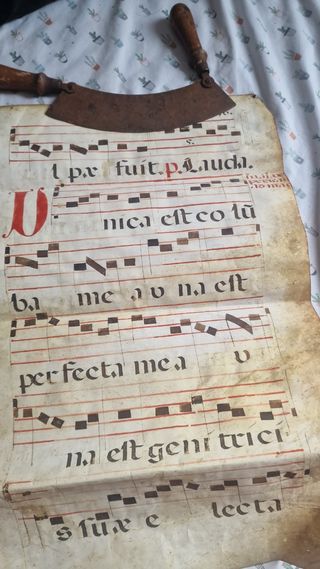 l pæ fuit. p. Lauda.
V nica est co lũ
ba me a v na est
perfecta mea v
na est geni trici
s suæ e lecta